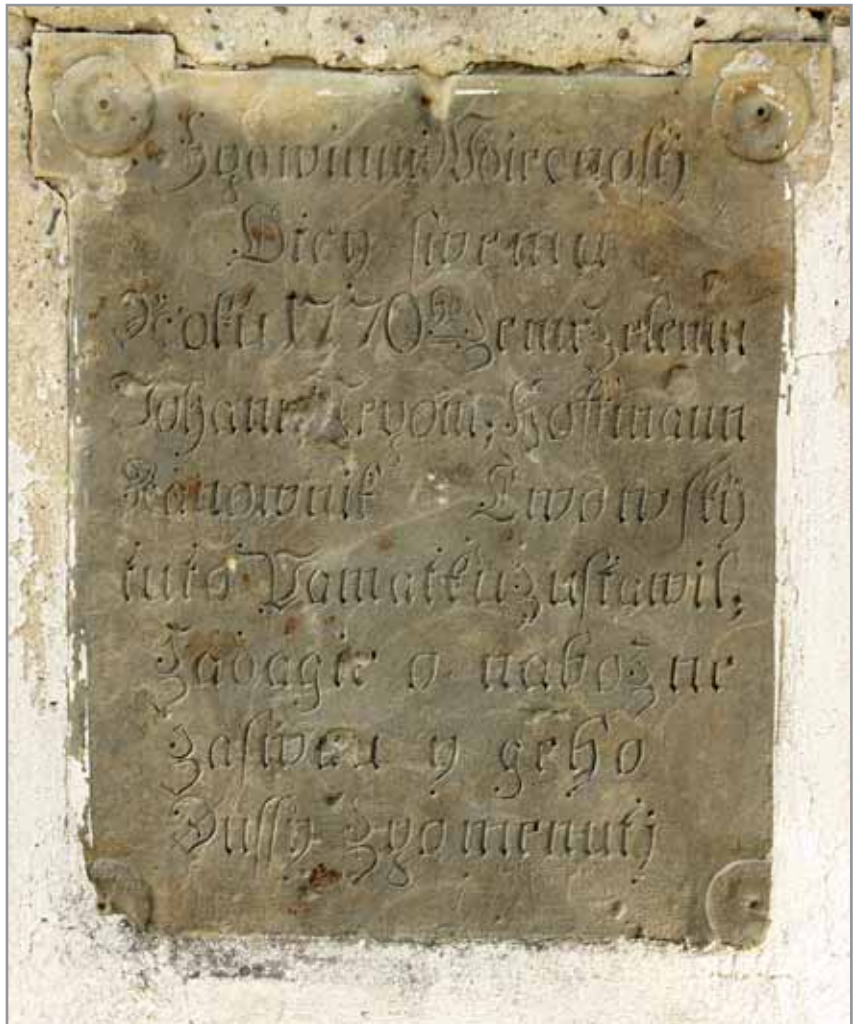 Zpowinnui
Otcy swemu
Roku 1770ho Zemrzelemu
Johann Nepom: Hoffmann
Kanownik Lwowsky
tuto Pamatku zustawil;
Zadagic o nabožne
za swau y geho
Dussy Zpomenutj